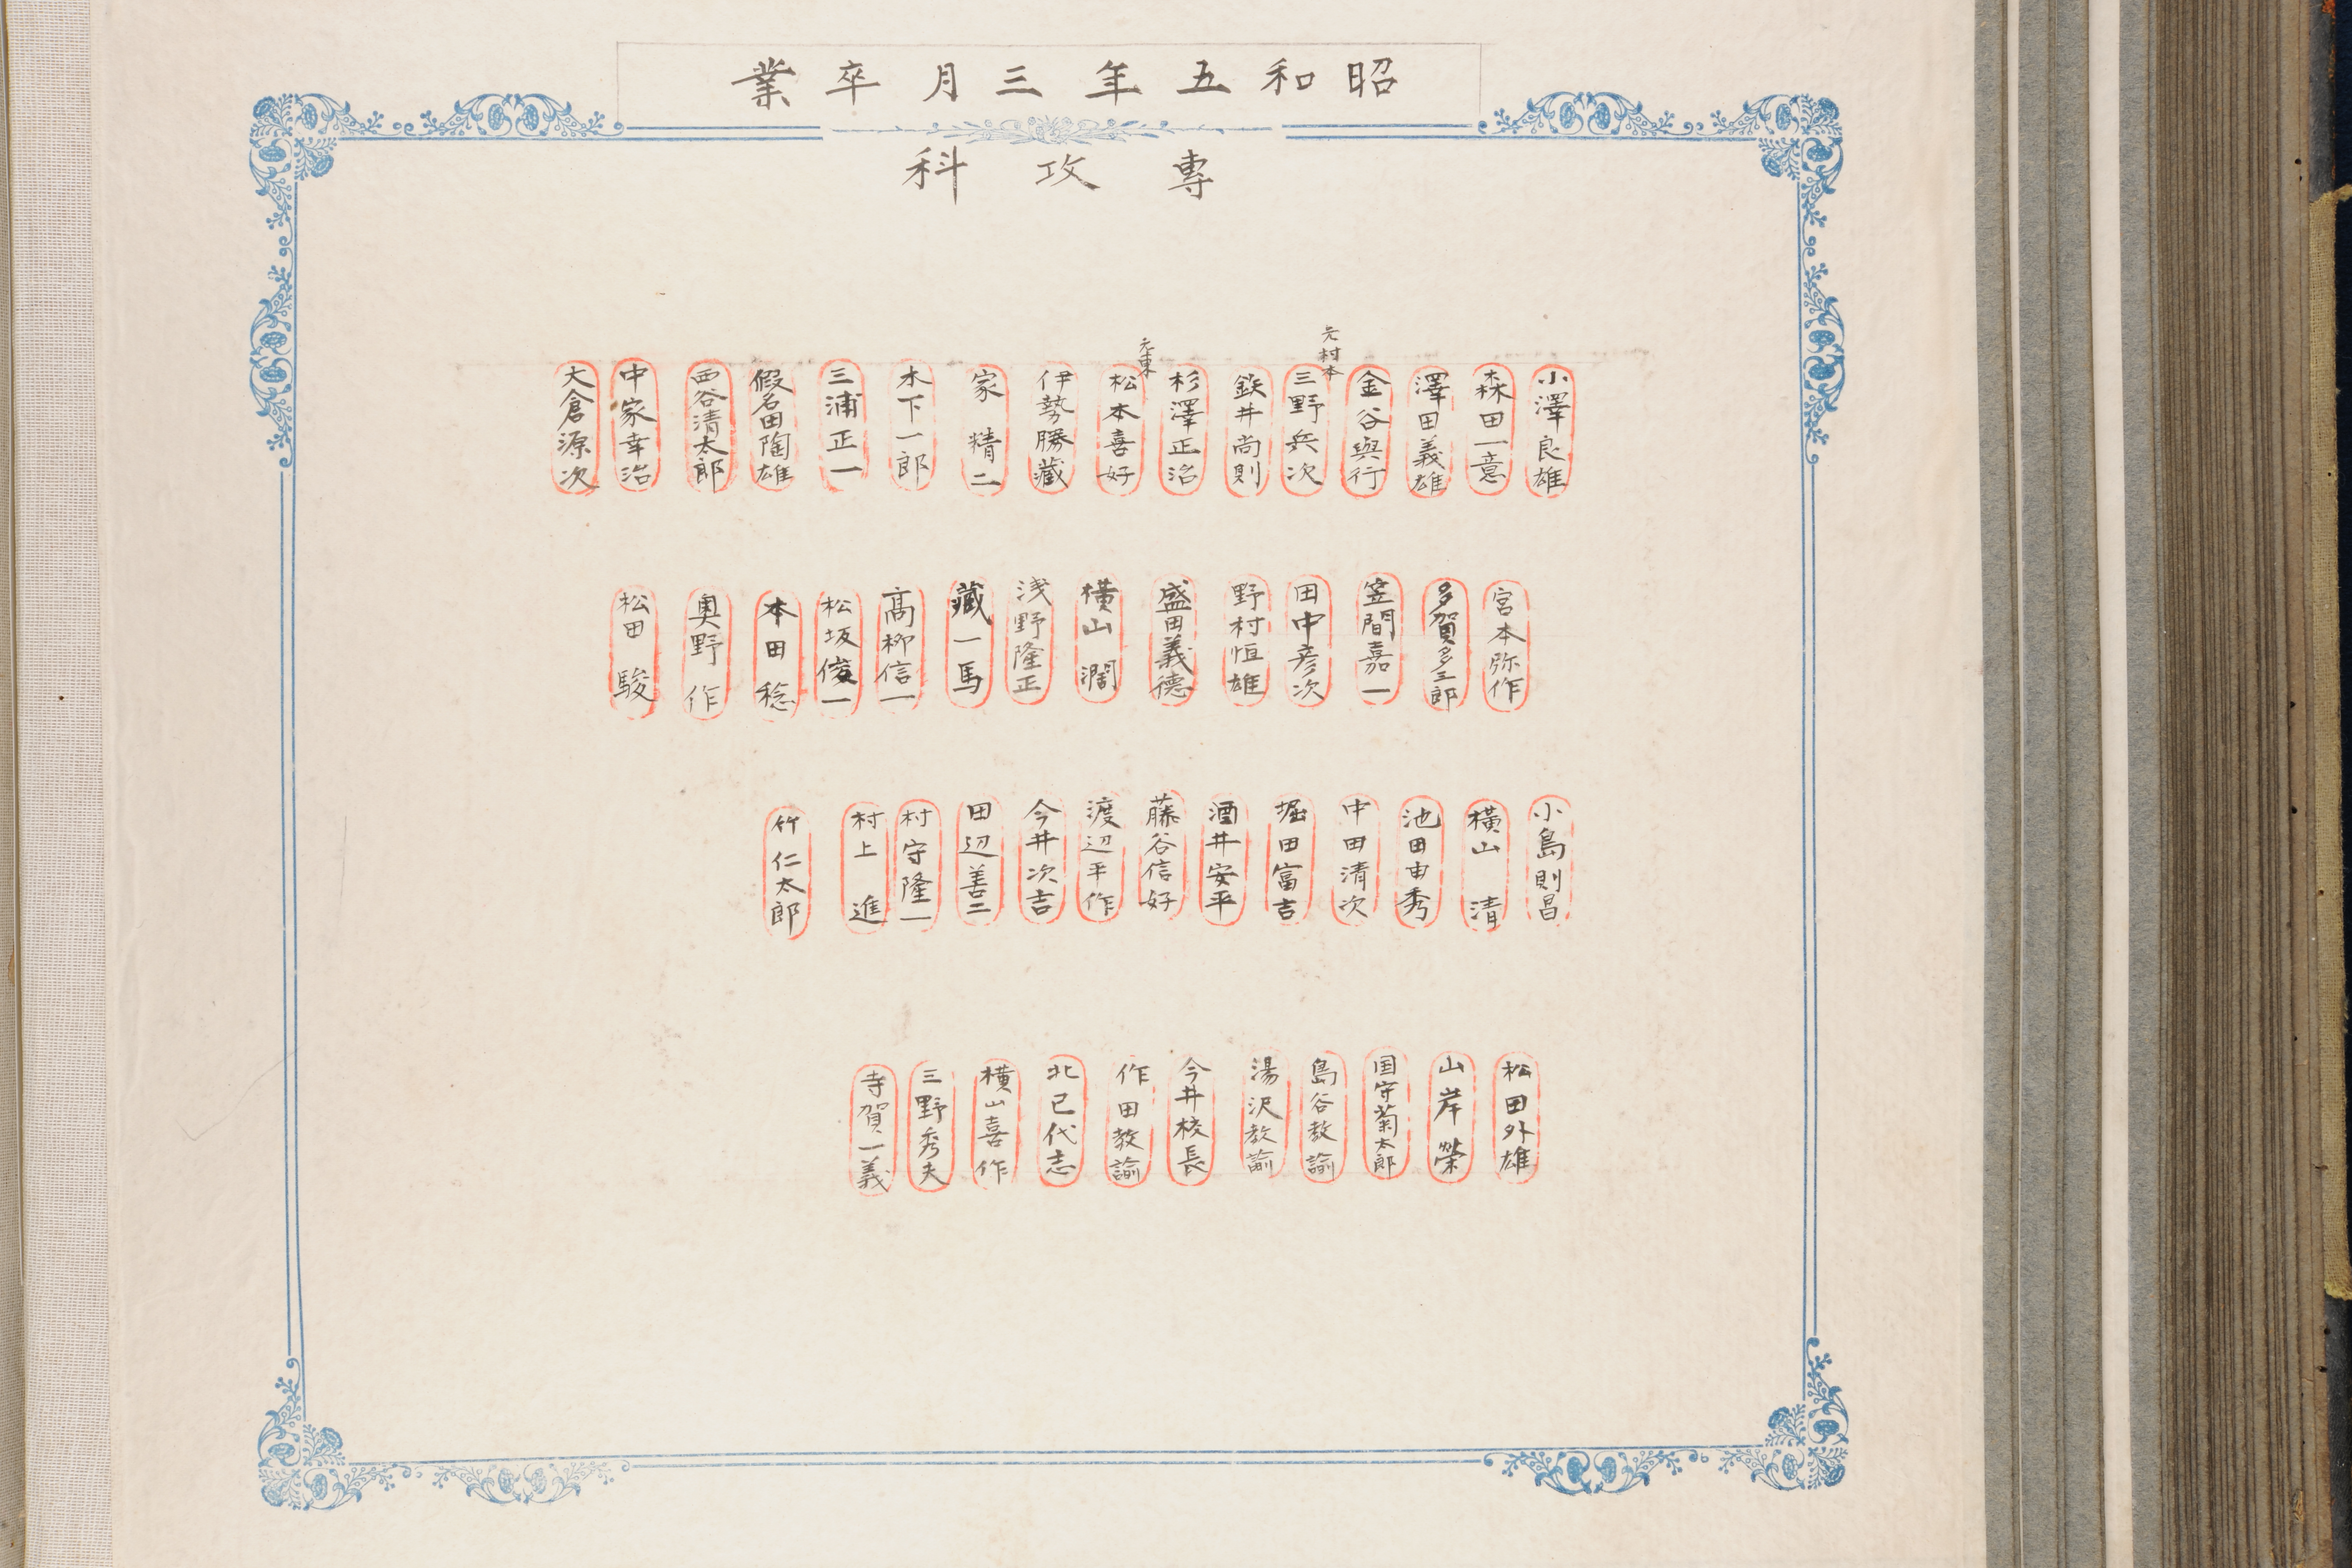 昭和五年三月卒業
專攻科
小澤良雄
森田一意
澤田義雄
金谷與行
元村本
三野兵次
鉄井尚則
杉澤正治
元東
松本喜好
伊勢勝藏
家精二
木下一郎
三浦正一
假名田陶雄
西谷清太郎
中家幸治
大倉源次
宮本弥作
多賀多三郎
笠間嘉一
田中彦次
野村恒雄
盛田義德
横山濶
浅野隆正
藏一馬
髙柳信一
松坂俊一
本田稔
奥野作
松田駿
小島則昌
横山清
池田由秀
中田清次
堀田富吉
酒井安平
藤谷信好
渡辺平作
今井次吉
田辺善二
村守隆一
村上進
竹仁太郎
松田外雄
山岸榮
国守菊太郎
島谷教諭
湯沢教諭
今井校長
作田教諭
北已代志
横山喜作
三野秀夫
寺賀一義